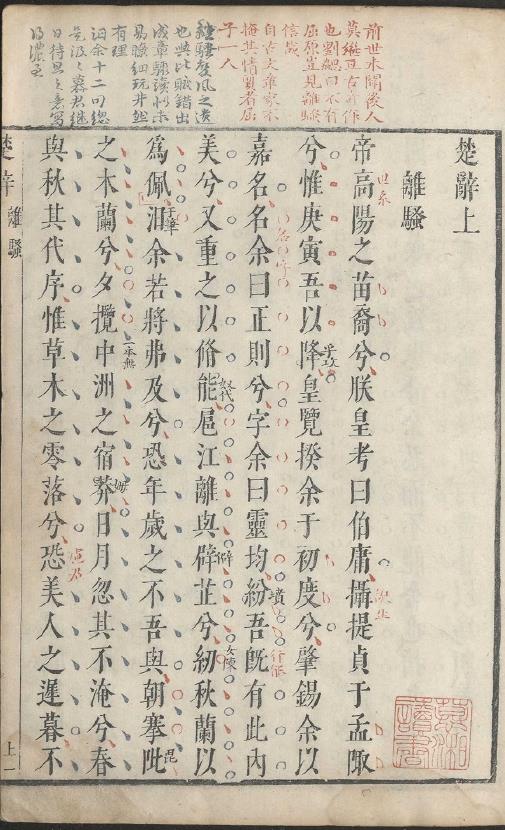 楚辭上
離騷
帝高陽之苗裔兮朕皇考曰伯庸攝提貞于孟陬
兮惟庚寅吾以降皇覽揆余于初度兮肇錫余以
嘉名名余曰正則兮字余曰靈均紛吾旣有此內
美兮又重之以脩能扈江離與辟芷兮紉秋蘭以
爲佩汩余若將弗及兮恐年歲之不吾與朝搴阰
之木蘭兮夕攬中洲之宿莽日月忽其不淹兮春
與秋其代序惟草木之零落兮恐美人之遲暮不
楚辭 離騷 上一
前世未聞後人
莫繼亘古奇作
也劉勰曰不有
屈原豈見離騷
信哉
自古文章家不
掩其情實者屈
子一人
也興比賦錯出
成章
易瞭細玩井然
有理
世系
名字
一本無